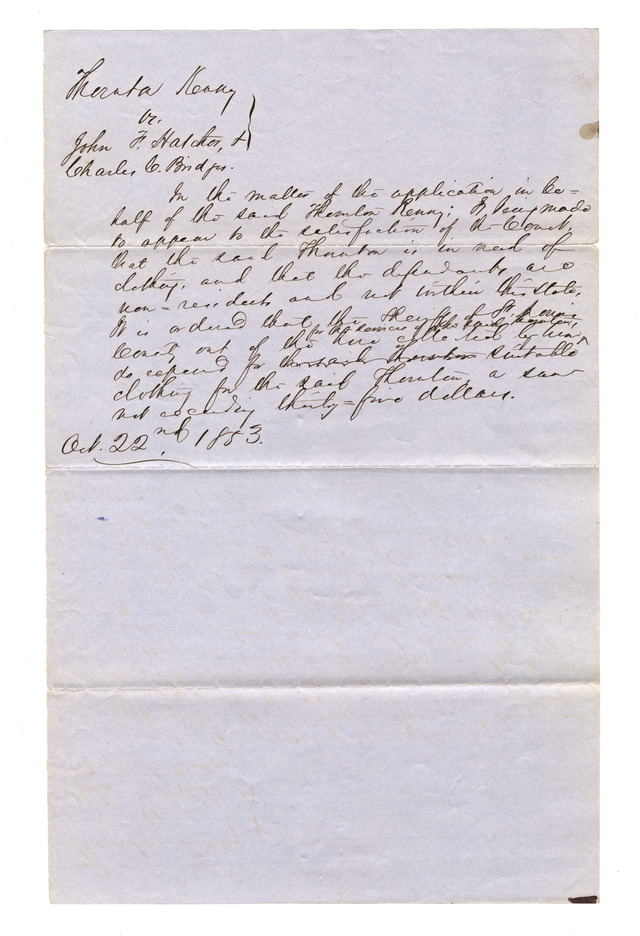 Thornton Kenny
vs.
John F. Hatcher, &
Charles C. Bridges.
In the matter of the application in be=
half of the said Thornton Kenny; It being made
to appear to the satisfaction of the Court,
that the said Thornton is in need of
clothing, and that the defendants are
non-residents and not within this state,
It is ordered that the Sheriff of St. Louis
for the services of the said Thornton,
County out of the hire collected by him,
do expend for suitable
clothing for the said Thornton a sum
not exceeding thirty=five dollars.
Oct. 22nd, 1853.